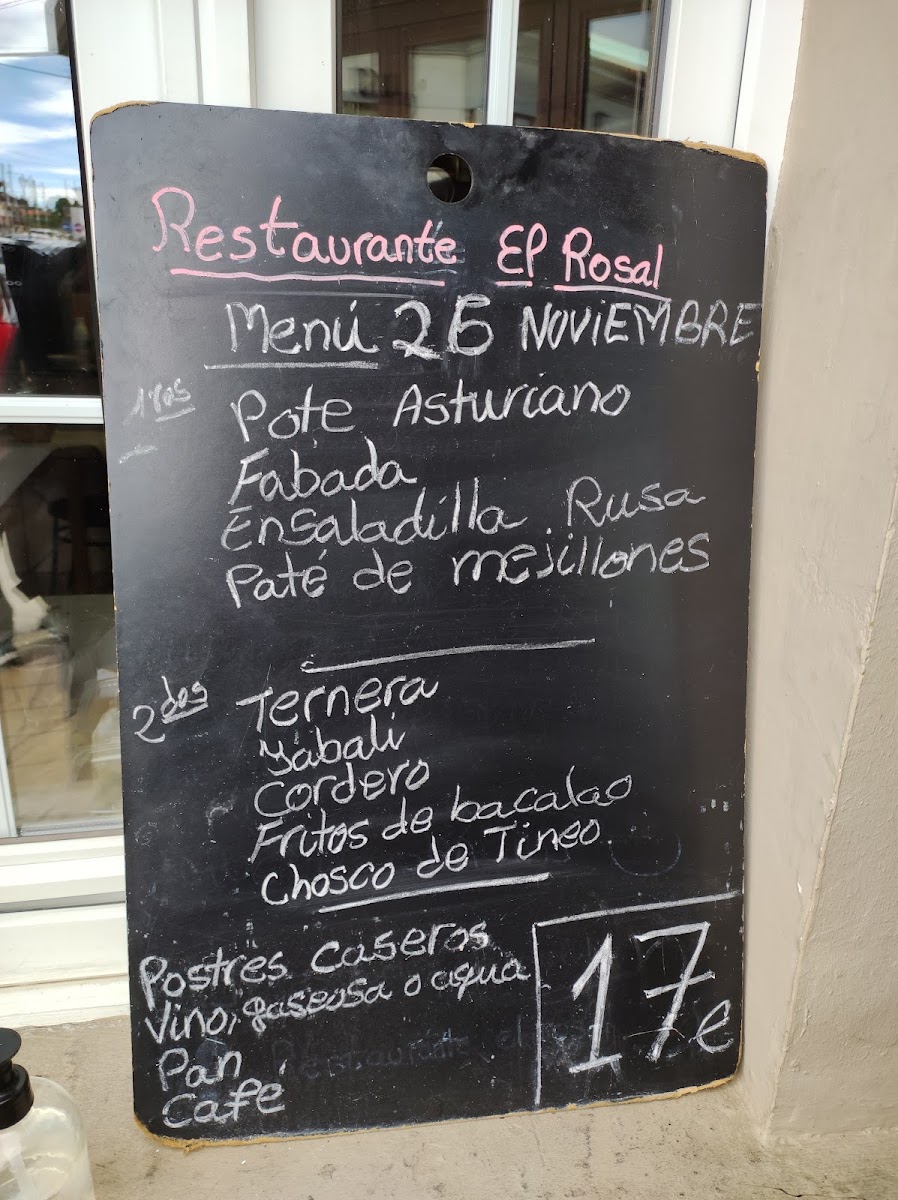 Restaurante El Rosal
Menú 26 NOViEMBRE
1ros
Pote Asturiano
Fabada
Ensaladilla Rusa
Paté de mejillones
2dos
Ternera
Jabali
Cordero
Fritos de bacalao
Chosco de Tineo
Postres caseros
Vino, gaseosa o agua
Pan
Café
17e